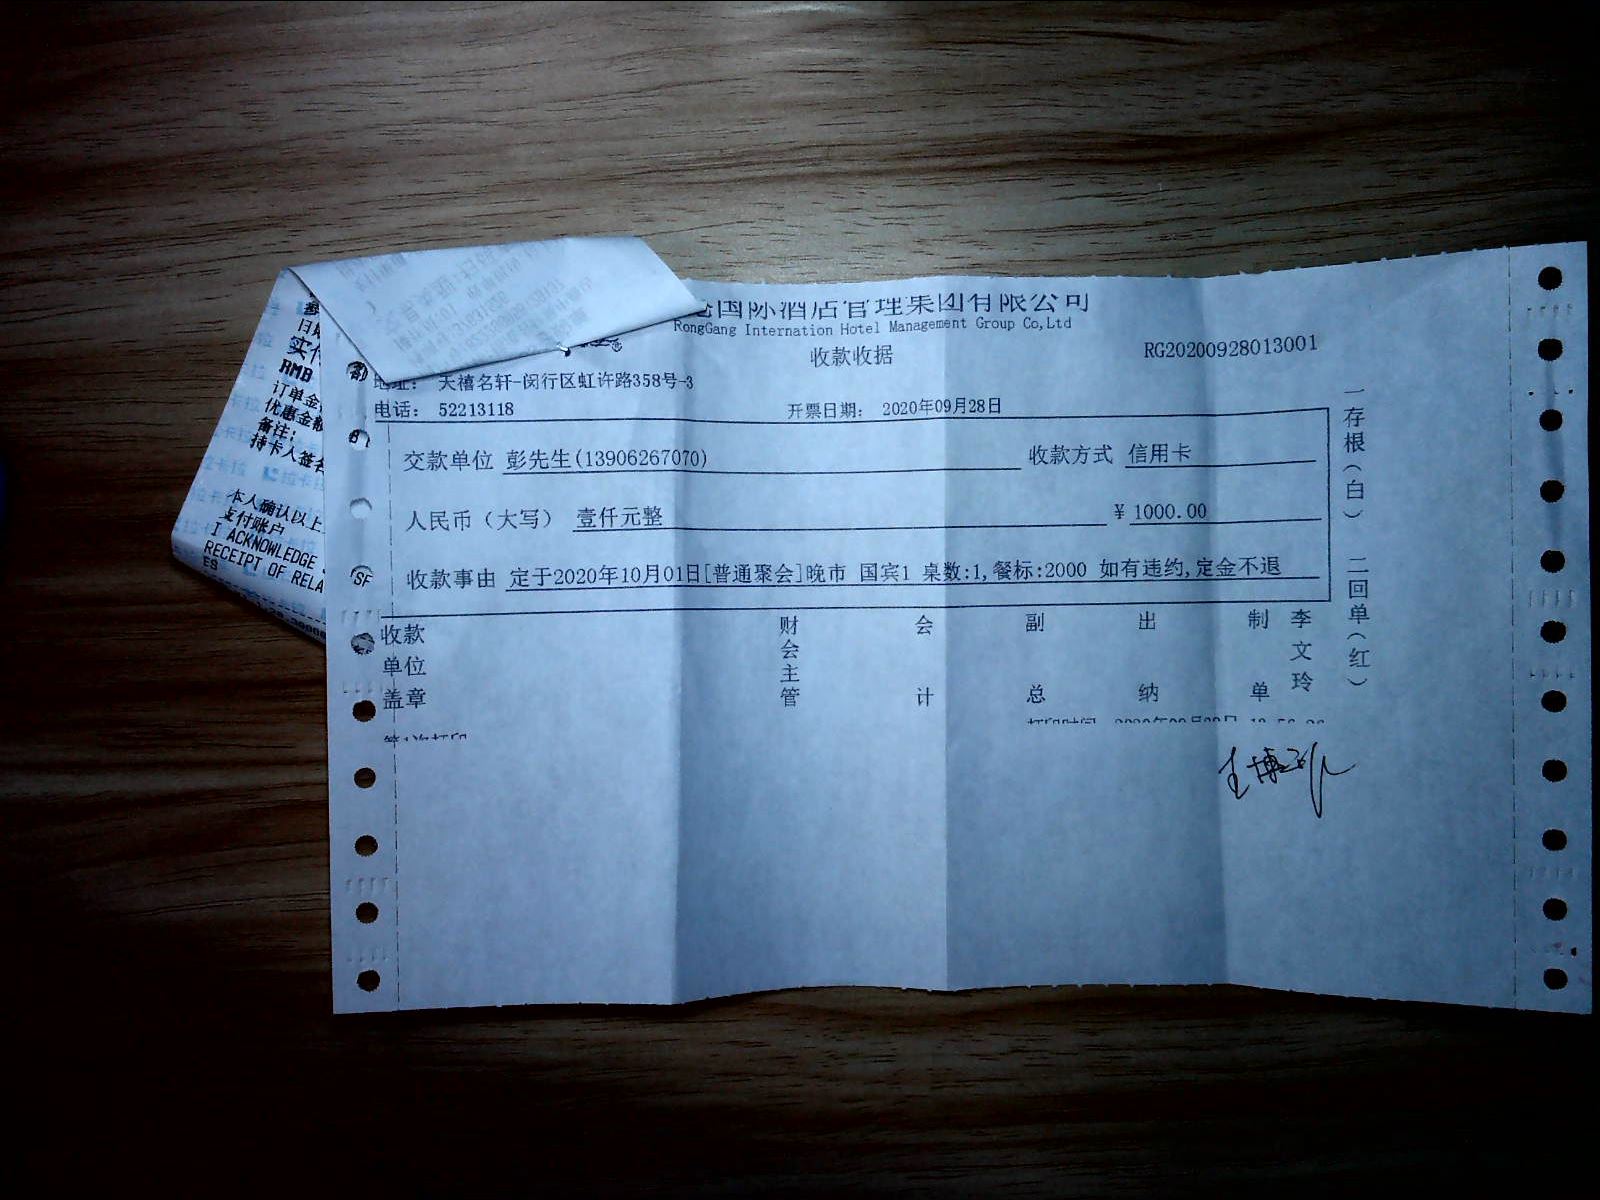 国际酒店管理集团有限公司
RongGang Internation Hotel Management Group Co,Ltd
收款收据
RG20200928013001
地址: 天禧名轩-闵行区虹许路358号-3
电话: 52213118
开票日期: 2020年09月28日
交款单位 彭先生(13906267070)
收款方式 信用卡
人民币(大写) 壹仟元整
¥ 1000.00
收款事由 定于2020年10月01日[普通聚会]晚市 国宾1 桌数:1,餐标:2000 如有违约,定金不退
收款单位盖章
财会主管
会计
副总
出纳
制单
李文玲
一存根(白) 二回单(红)
实付
RMB
订单金
优惠金额
备注:
持卡人签名
本人确认以上
支付账户
I ACKNOWLEDGE
RECEIPT OF RELA
ES